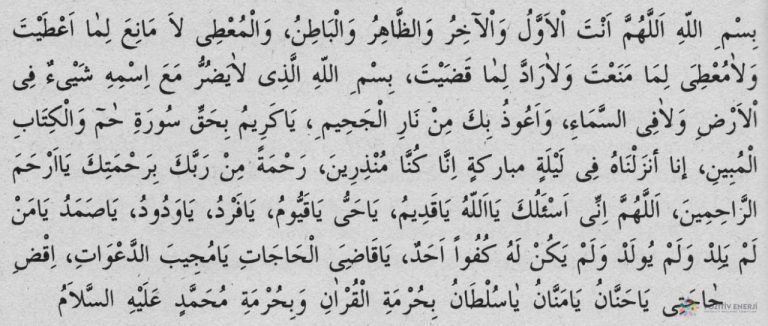 بِسْمِ اللّٰهِ اَللّٰهُمَّ اَنْتَ اْلاَوَّلُ وَاْلاٰخِرُ وَالظَّاهِرُ وَالْبَاطِنُ، وَالْمُعْطِى لاَ مَانِعَ لِمٰا اَعْطَيْتَ
وَلاٰمُعْطِىَ لِمَا مَنَعْتَ وَلاٰرَادَّ لِمٰا قَضَيْتَ، بِسْمِ اللّٰهِ الَّذِى لاٰيَضُرُّ مَعَ اِسْمِهِ شَيْىءٌ فِى
اْلاَرْضِ وَلاٰفِى السَّمَاءِ، وَاَعُوذُ بِكَ مِنْ نَارِ الْجَحِيمِ، يَاكَرِيمُ بِحَقِّ سُورَةِ حٰمٓ وَالْكِتَابِ
الْمُبِينِ، إنا أنزَلْنَاهُ فِى لَيْلَةٍ مباركةٍ اِنَّا كُنَّا مُنْذِرِينَ، رَحْمَةً مِنْ رَبِّكَ بِرَحْمَتِكَ يَااَرْحَمَ
الرَّاحِمِينَ، اَللّٰهُمَّ اِنِّى اَسْئَلُكَ يَااَللّٰهُ يَاقَدِيمُ، يَاحَىُّ يَاقَيُّومُ، يَافَرْدُ، يَاوَدُودُ، يَاصَمَدُ يَامَنْ
لَمْ يَلِدْ وَلَمْ يُولَدْ وَلَمْ يَكُنْ لَهُ كُفُواً اَحَدٌ، يَاقَاضِىَ الْحَاجَاتِ يَامُجِيبَ الدَّعْوَاتِ، اِقْضِ
حٰاجَتِى يَاحَنَّانُ يَامَنَّانُ يٰاسُلْطَانُ بِحُرْمَةِ الْقُرْاٰنِ وَبِحُرْمَةِ مُحَمَّدٍ عَلَيْهِ السَّلاَمُ
POZİTİV ENERJİ